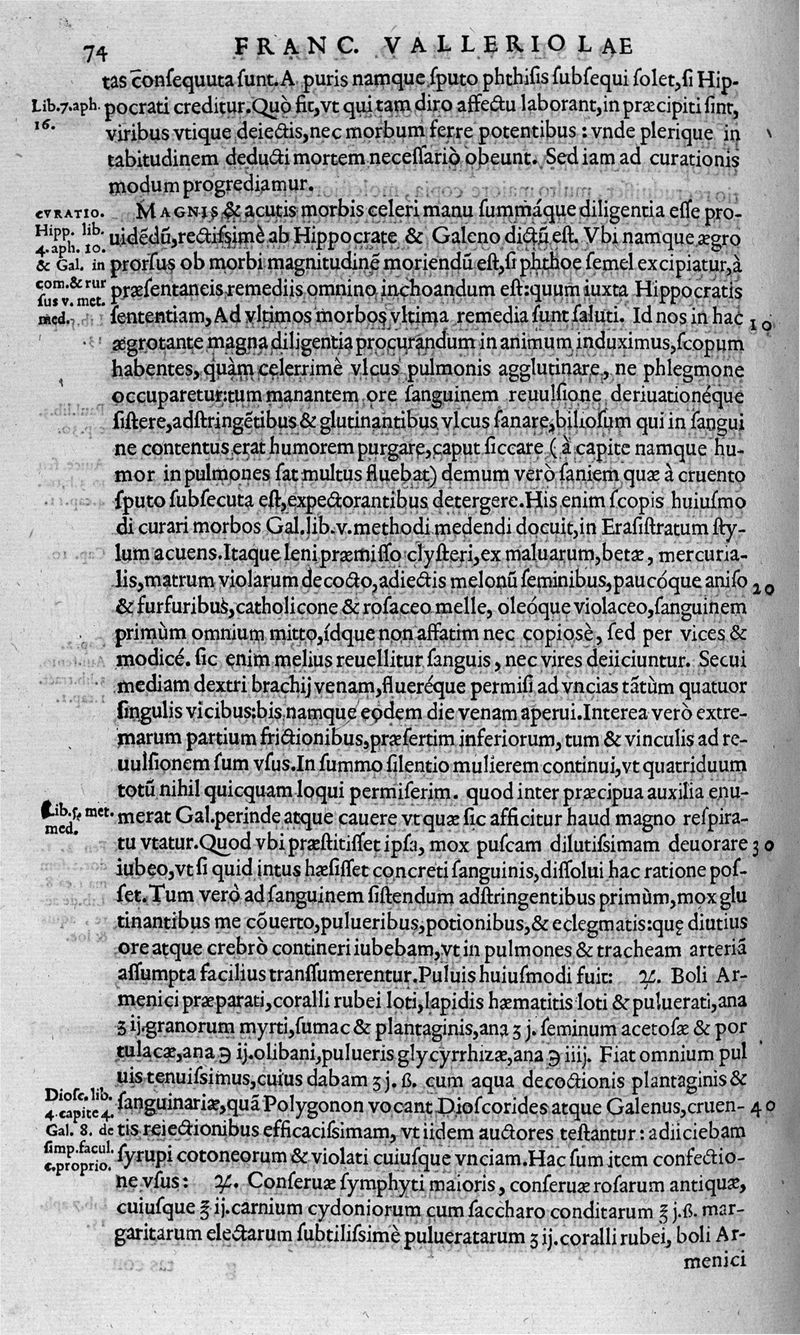 74 FRANC. VALLERIOLAE
tas cōnſequuta ſunt. A puris namque ſputo phthiſis ſubſequi ſolet, ſi Hip-
Lib.7.aph. pocrati creditur. Quò fit, vt qui tam diro affectu laborant, in præcipiti ſint,
16. viribus vtique deiectis, nec morbum ferre potentibus: vnde plerique in
tabitudinem deducti mortem neceſſariò obeunt. Sed iam ad curationis
modum progrediamur.
CVRATIO. MAGNIS & acutis morbis celeri manu ſummáque diligentia eſſe pro-
Hipp. lib. uidēdū, rectiſsimè ab Hippocrate & Galeno dictū eſt. Vbi namque ægro
4. aph. 10.
& Gal. in prorſus ob morbi magnitudinē moriendū eſt, ſi phthoe ſemel excipiatur, à
com. & rur præſentaneis remediis omnino inchoandum eſt: quum iuxta Hippocratis
ſus v. met.
med. ſententiam, Ad vltimos morbos vltima remedia ſunt ſaluti. Id nos in hac 10
ægrotante magna diligentia procurandum in animum induximus, ſcopum
habentes, quàm celerrimè vlcus pulmonis agglutinare, ne phlegmone
occuparetur: tum manantem ore ſanguinem reuulſione deriuationéque
ſiſtere, adſtringētibus & glutinantibus vlcus ſanare, bilioſum qui in ſangui
ne contentus erat humorem purgare, caput ſiccare (à capite namque hu-
mor in pulmones ſat multus fluebat) demum verò ſaniem quæ à cruento
ſputo ſubſecuta eſt, expectorantibus detergere. His enim ſcopis huiuſmo
di curari morbos Gal. lib. v. methodi medendi docuit, in Eraſiſtratum ſty-
lum acuens. Itaque leni præmiſſo clyſteri, ex maluarum, betæ, mercuria-
lis, matrum violarum decocto, adiectis melonū ſeminibus, paucóque aniſo 20
& furfuribus, catholicone & roſaceo melle, oleóque violaceo, ſanguinem
primùm omnium mitto, ídque non affatim nec copioſè, ſed per vices &
modicé. ſic enim melius reuellitur ſanguis, nec vires deiiciuntur. Secui
mediam dextri brachij venam, flueréque permiſi ad vncias tātùm quatuor
ſingulis vicibus: bis namque eodem die venam aperui. Interea verò extre-
marum partium frictionibus, præſertim inferiorum, tum & vinculis ad re-
uulſionem ſum vſus. In ſummo ſilentio mulierem continui, vt quatriduum
totū nihil quicquam loqui permiſerim. quod inter præcipua auxilia enu-
Lib.5. met. merat Gal. perinde atque cauere vt quæ ſic afficitur haud magno reſpira-
med.
tu vtatur. Quod vbi præſtitiſſet ipſa, mox puſcam dilutiſsimam deuorare 30
iubeo, vt ſi quid intus hæſiſſet concreti ſanguinis, diſſolui hac ratione poſ-
ſet. Tum verò ad ſanguinem ſiſtendum adſtringentibus primùm, mox glu
tinantibus me cōuerto, pulueribus, potionibus, & eclegmatis: quę diutius
ore atque crebrò contineri iubebam, vt in pulmones & tracheam arteriā
aſſumpta facilius tranſſumerentur. Puluis huiuſmodi fuit: ℞. Boli Ar-
menici præparati, coralli rubei loti, lapidis hæmatitis loti & puluerati, ana
ʒ ij. granorum myrti, ſumac & plantaginis, ana ʒ j. ſeminum acetoſæ & por
tulacæ, ana ℈ ij. olibani, pulueris glycyrrhizæ, ana ℈ iiij. Fiat omnium pul
uis tenuiſsimus, cuius dabam ʒ j. ß. cum aqua decoctionis plantaginis &
Dioſc. lib. ſanguinariæ, quā Polygonon vocant Dioſcorides atque Galenus, cruen- 40
4. capite 4.
Gal. 8. de tis reiectionibus efficaciſsimam, vt iidem auctores teſtantur: adiiciebam
ſimp. facul. ſyrupi cotoneorum & violati cuiuſque vnciam. Hac ſum item confectio-
c. proprio.
ne vſus: ℞. Conſeruæ ſymphyti maioris, conſeruæ roſarum antiquæ,
cuiuſque ℥ ij. carnium cydoniorum cum ſaccharo conditarum ℥ j. ß. mar-
garitarum electarum ſubtiliſsimè pulueratarum ʒ ij. coralli rubei, boli Ar-
menici